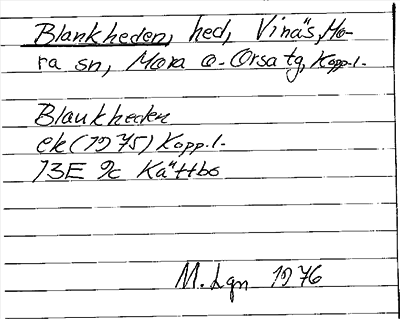 Blankheden, hed, Vinäs, Mo-
ra sn, Mora o. Orsa tg, Kopp.l.
Blankheden
ek (1975) Kopp.l.
13E 9c Kättbo
M. Lgn 1976